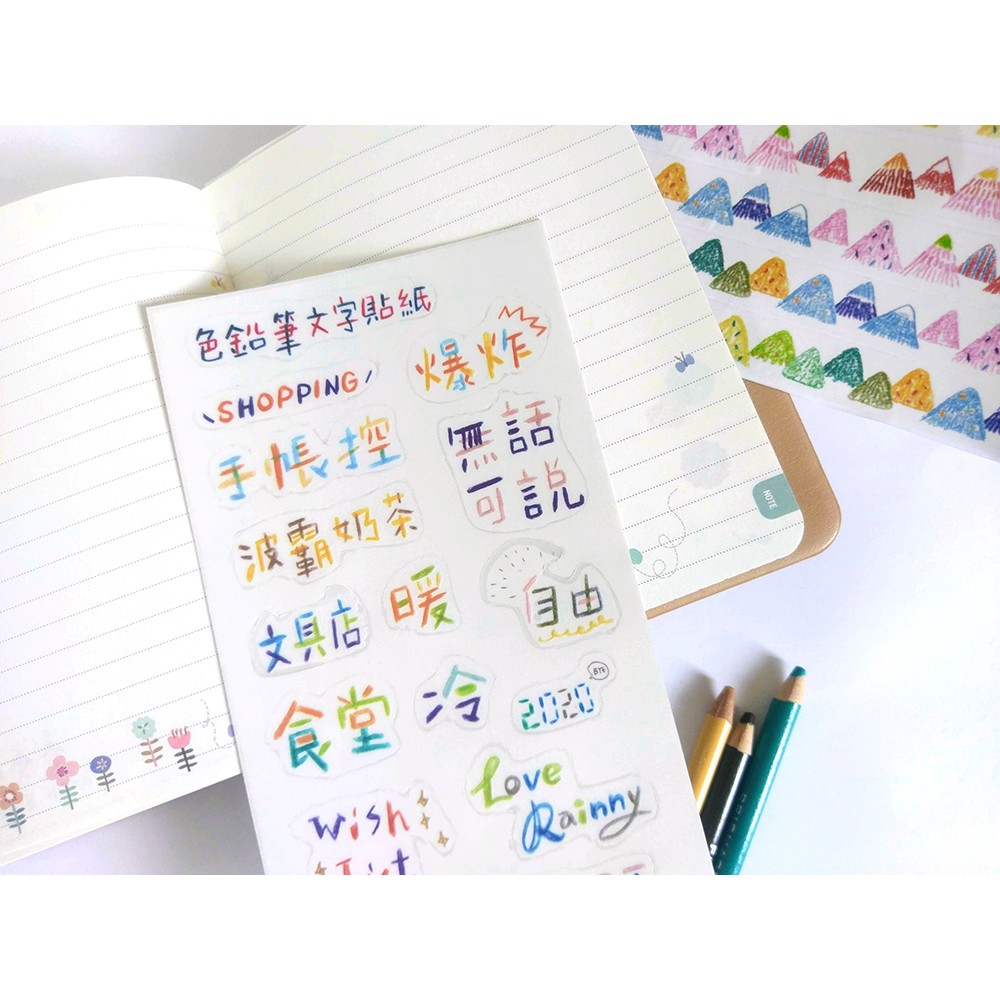 色鉛筆文字貼紙
爆炸
SHOPPING
手帳控
無話
可說
波霸奶茶
暖
自由
文具店
食堂
冷
2020
BYE
Love
Rainny
wish
NOTE